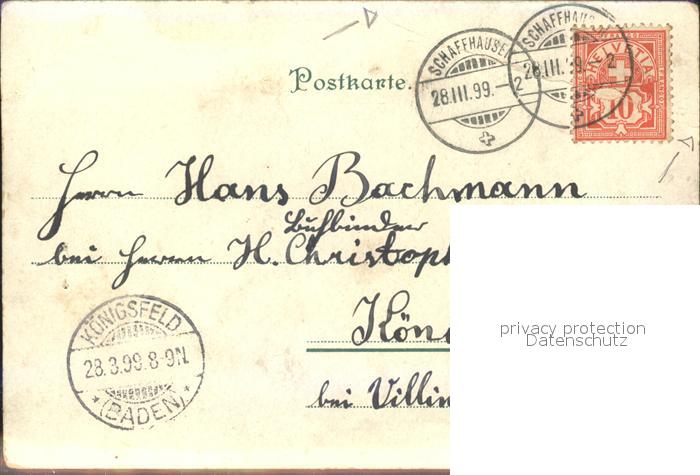 Postkarte.
SCHAFFHAUSEN
28.III.99.–2
SCHAFFHAUS
28.III.99.–2
HELVETIA
10
Herrn Hans Bachmann
Buchbinder
bei Herrn H. Christoph
Kön
bei Villin
KÖNIGSFELD
28.3.99.8-9N.
* (BADEN) *
privacy protection
Datenschutz